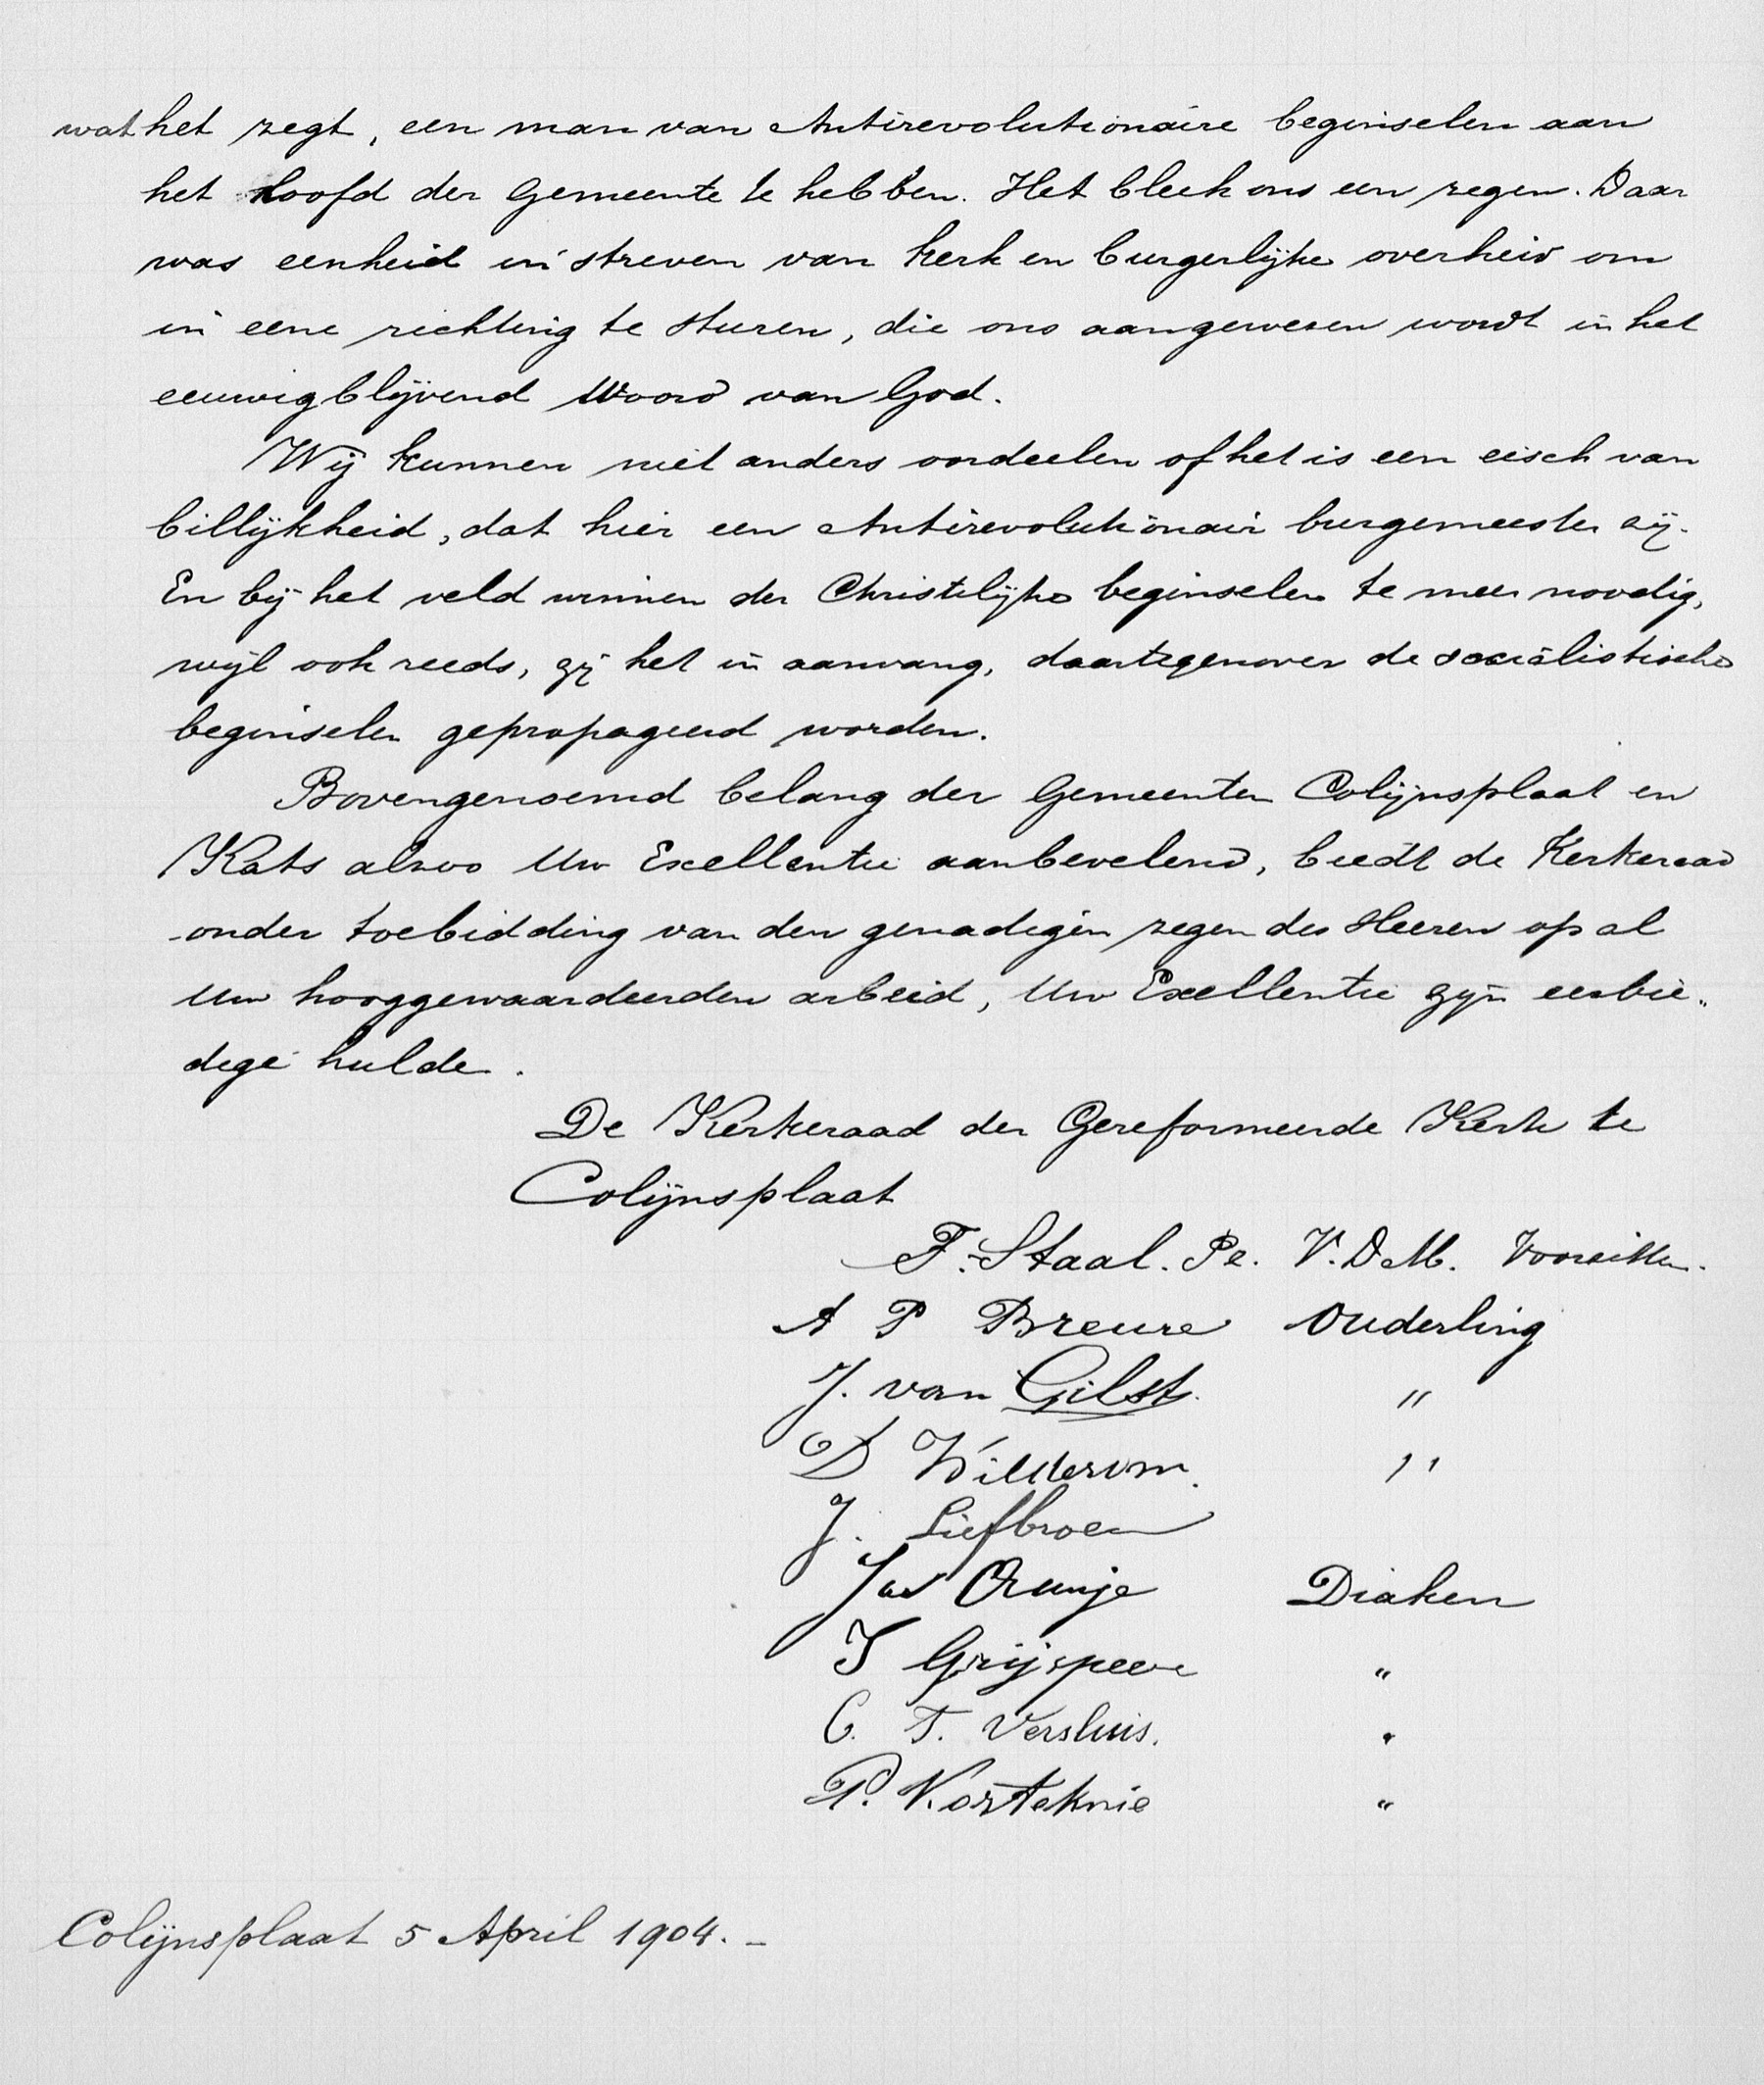 wat het zegt, een man van Antirevolutionaire beginselen aan
het hoofd der Gemeente te hebben. Het bleek ons een zegen. Daar
was eenheid in streven van Kerk en burgerlijke overheid om
in eene richting te sturen, die ons aangewezen wordt in het
eeuwigblijvend Woord van God.
Wij kunnen niet anders oordeelen of het is een eisch van
billijkheid, dat hier een Antirevolutionair burgemeester zij.
En bij het veld winnen der Christelijke beginselen te meer noodig,
wijl ook reeds, zij het in aanvang, daartegenover de socialistische
beginselen gepropageerd worden.
Bovengenoemd belang der Gemeenten Colijnsplaat en
Kats alzoo Uw Excellentie aanbevelend, biedt de Kerkeraad
onder toebidding van den genadigen zegen des Heeren op al
Uw hooggewaardeerden arbeid, Uw Excellentie zijn eerbie„
dige hulde.
De Kerkeraad der Gereformeerde Kerk te
Colijnsplaat
F. Staal. Pz. V.D.M. Voorzitter.
A P Breure Ouderling
J. van Gilst. "
D Wilderom. "
J. Liefbroer
Jas Oranje Diaken
I Grijspeer "
C. T. Versluis. "
P. Korteknie "
Colijnsplaat 5 April 1904. -